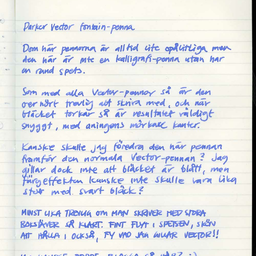 Parker Vector fontän-penna
Den här pennorna är alltid lite opålitliga men
den här är inte en kalligrafi-penna utan har
en rund spets.
Som med alla Vector-pennor så är den
oerhört trevlig att skriva med, och när
bläcket torkar så är resultatet väldigt
snyggt, med aningens mörkare kanter.
Kanske skulle jag föredra den här pennan
framför den normala Vector-pennan? Jag
gillar dock inte att bläcket är blått, men
färgeffekten kanske inte skulle vara lika
stor med svart bläck?
MINST LIKA TREVLIG OM MAN SKRIVER MED STORA
BOKSTÄVER SÅ KLART. FINT FLYT I SPETSEN, SKÖN
ATT HÅLLA I OCKSÅ, TY VAD JAG GILLAR VECTOR!!